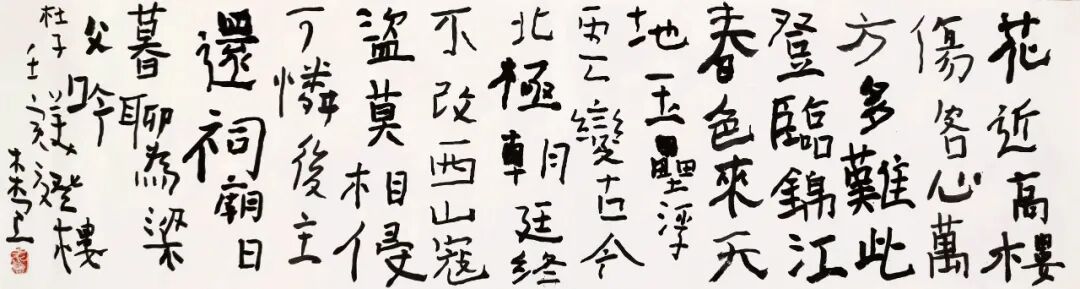 花近高樓
傷客心萬
方多難此
登臨錦江
春色來天
地玉壘浮
雲變古今
北極朝廷終
不改西山寇
盜莫相侵
可憐後主
還祠廟日
暮聊為梁
父吟
杜子美登樓